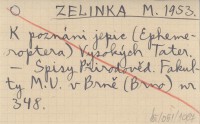 O ZELINKA M. 1953.
K poznání jepic (Epheme-
roptera) Vysokých Tater.
— Spisy Přírodověd. Fakul-
ty M.U. v Brně (Brno) nr
348.